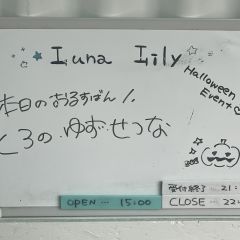 Luna Lily
Halloween
Event
本日のおるすばん
くろの ゆず・せつな
OPEN … 15:00
受付終了 … 21:
CLOSE … 22: